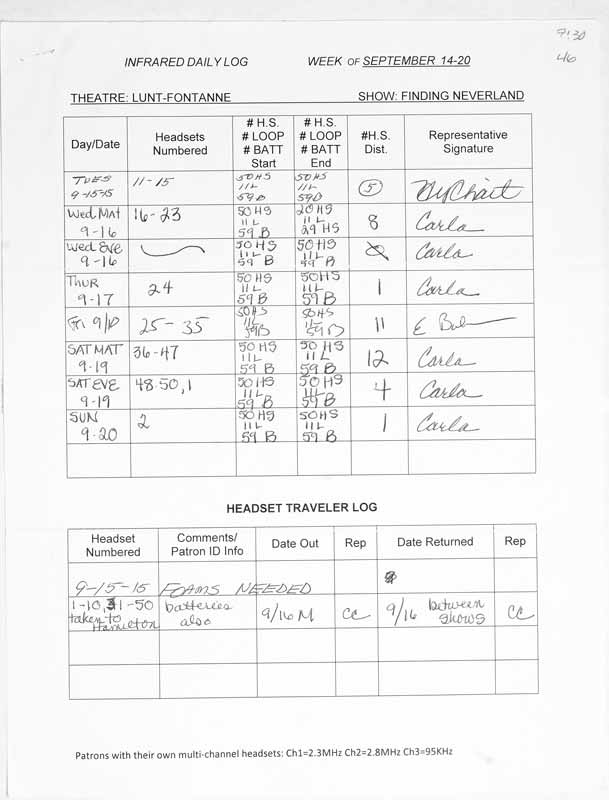 9:30
46
INFRARED DAILY LOG WEEK OF SEPTEMBER 14-20
THEATRE: LUNT-FONTANNE SHOW: FINDING NEVERLAND
Day/Date Headsets Numbered # H.S. # LOOP # BATT Start # H.S. # LOOP # BATT End #H.S. Dist. Representative Signature
TUES 9-15-15 11-15 50HS 11L 59B 50HS 11L 59B 5
Wed. MAT 9-16 16-23 50HS 11L 59 B 20HS 11L 29 HS 8 Carla
Wed EVE 9-16 50HS 11L 59 B 50HS 11L 59 B Carla
THUR 9-17 24 50HS 11L 59 B 50HS 11L 59 B 1 Carla
Fri 9/18 25-35 50HS 11L 59B 50HS 11L 59 B 11 E
SAT MAT 9-19 36-47 50 HS 11L 59 B 50 HS 11 L 59 B 12 Carla
SAT EVE 9-19 48-50,1 50HS 11L 59 B 50 HS 11L 59 B 4 Carla
SUN 9-20 2 50HS 11L 59 B 50HS 11L 59 B 1 Carla
HEADSET TRAVELER LOG
Headset Numbered Comments/ Patron ID Info Date Out Rep Date Returned Rep
9-15-15 FOAMS NEEDED
1-10, 31-50 taken to Hamilton batteries also 9/16 M CC 9/16 between shows CC
Patrons with their own multi-channel headsets: Ch1=2.3MHz Ch2=2.8MHz Ch3=95KHz